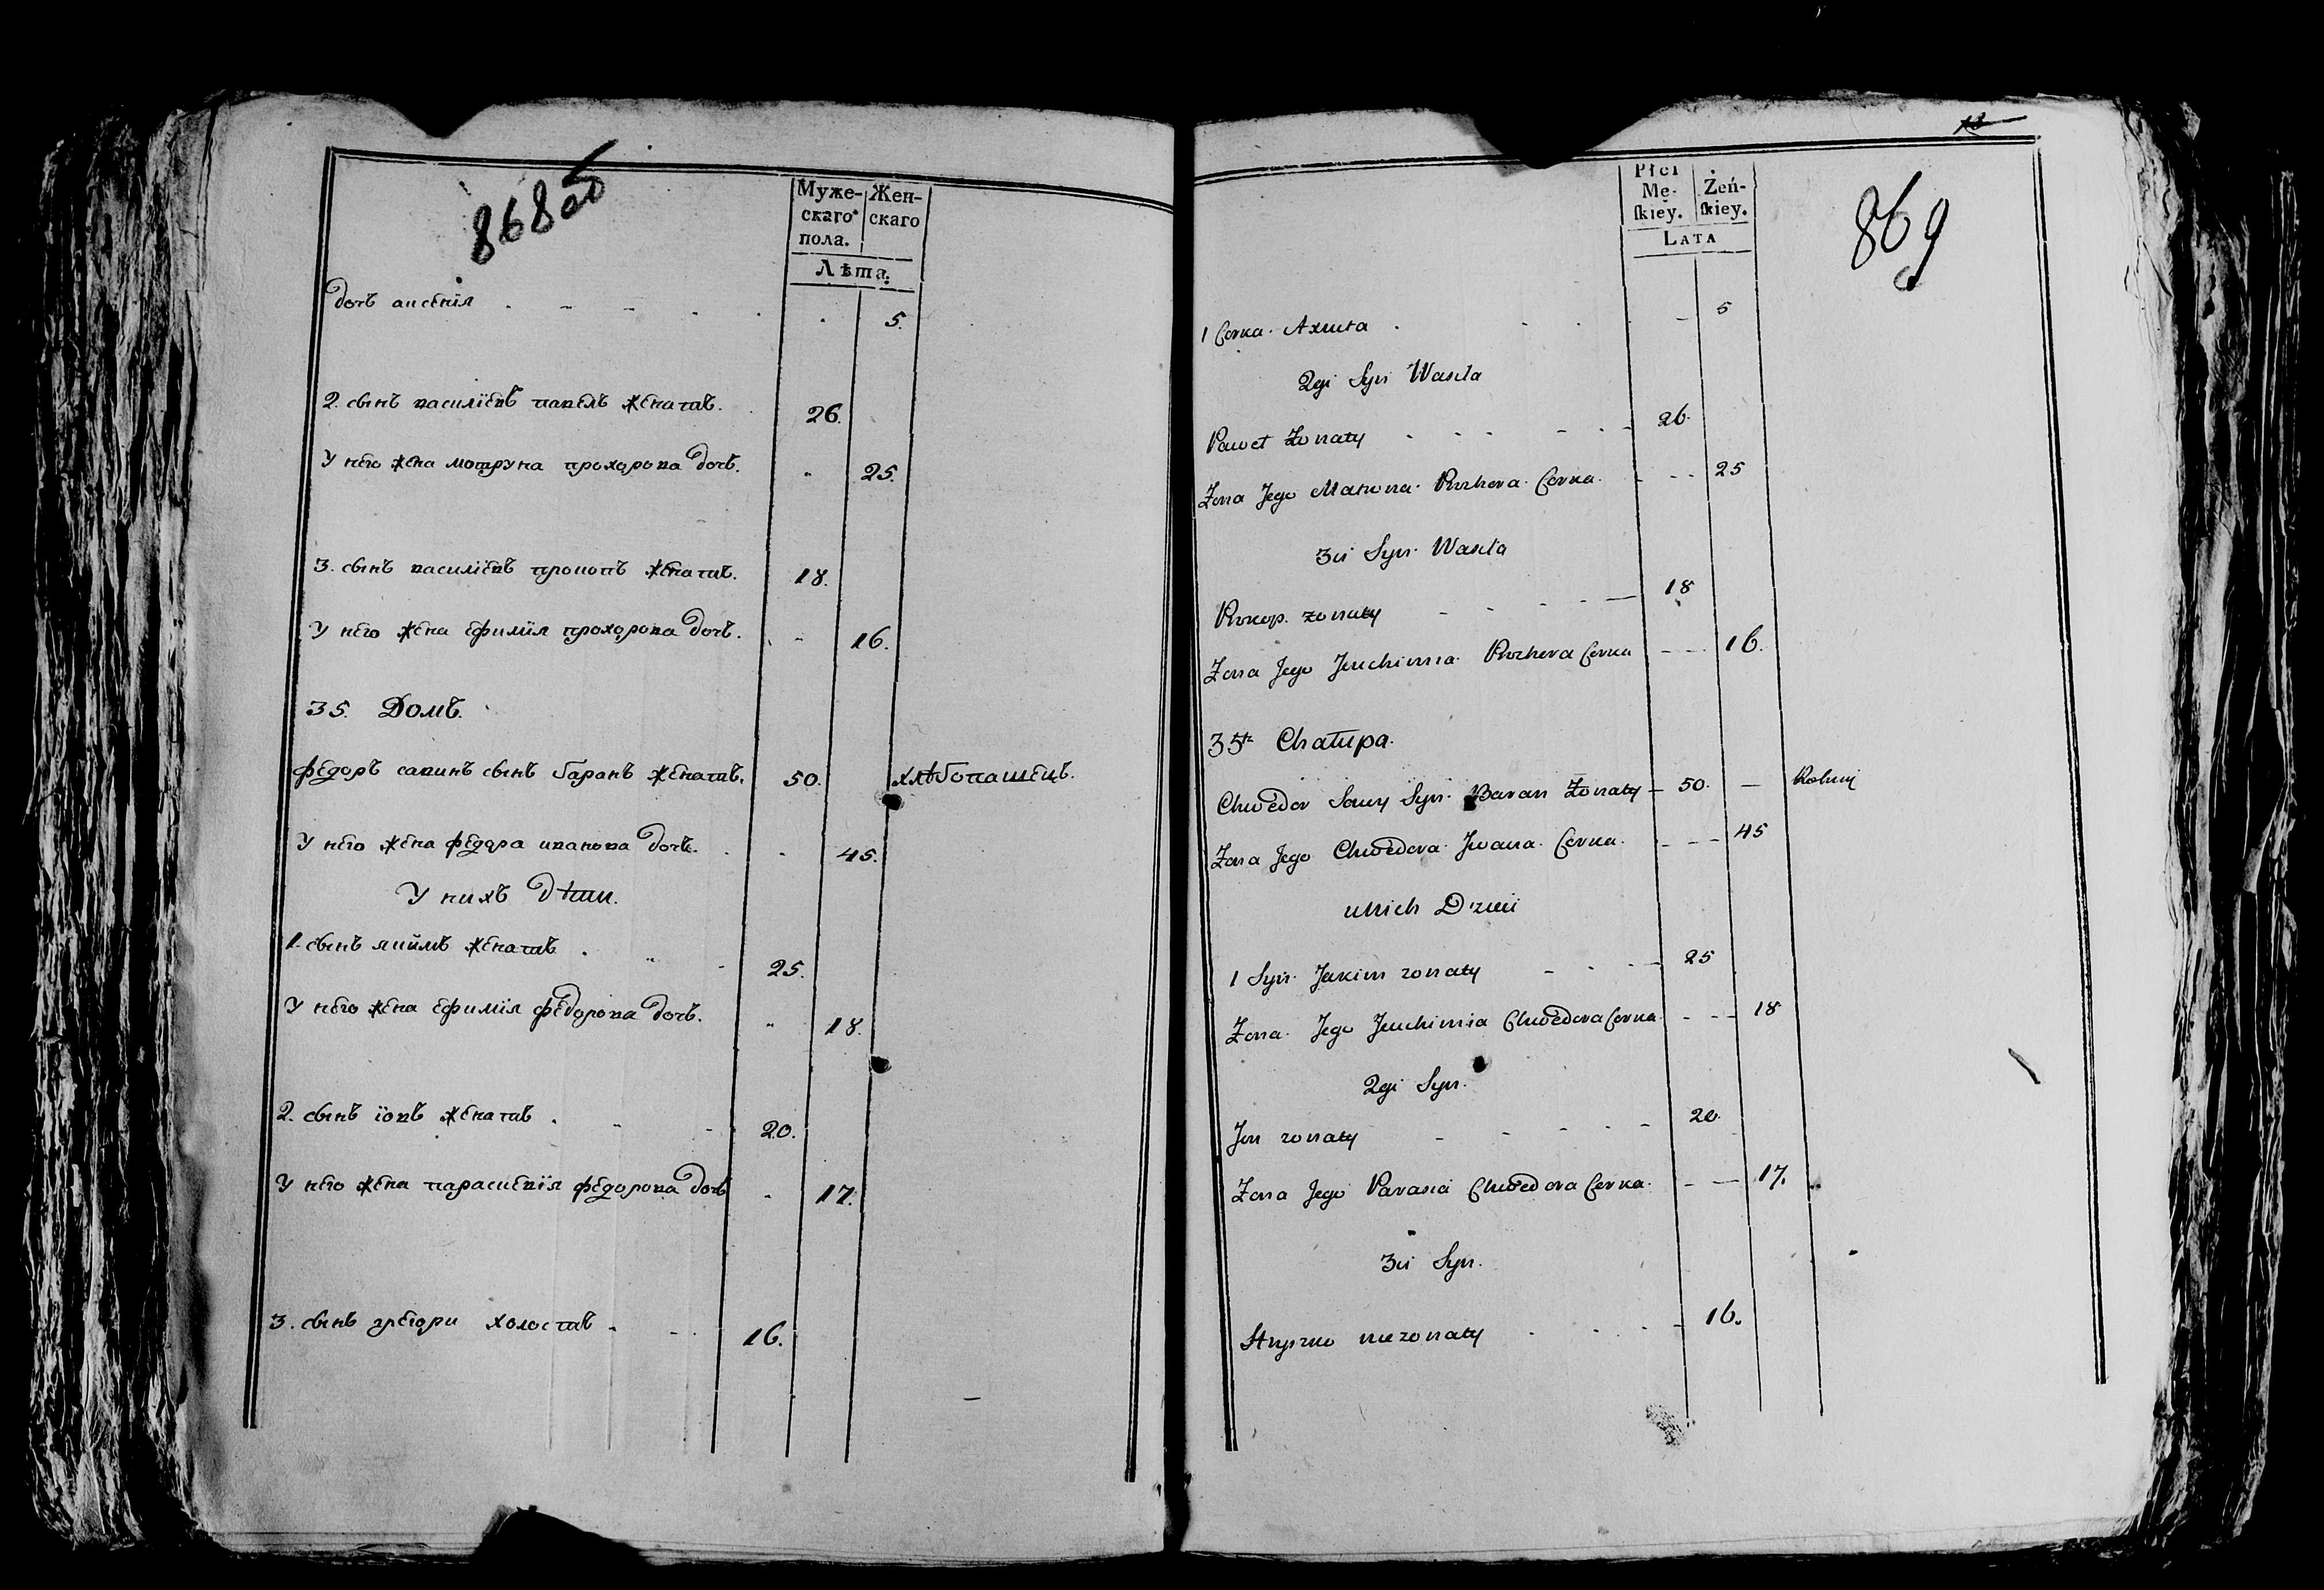 868 об
Муже-
скаго
пола.
Жен-
скаго
Лѣта.
дочь аксенiя 5.
2. сынъ василiевъ павелъ женатъ. 26.
У него жена мотруна прохорова дочь. 25.
3. сынъ василiевъ прокопъ женатъ. 18.
У него жена ефимiя прохорова дочь. 16.
35. Домъ.
федоръ савинъ сынъ баранъ женатъ. 50. хлѣбопашецъ.
У него жена федора иванова дочь. 45.
У нихъ дѣти.
1. сынъ якимъ женатъ 25.
У него жена ефимiя федорова дочь. 18.
2. сынъ iовъ женатъ 20.
У него жена параскевiя федорова дочь 17.
3. сынъ грегори холостъ 16.
869
Płci
Mę-
ſkiey.
Żeń-
ſkiey.
LATA
1 Corka. Axiuta 5
2gi Syn Wasila
Paweł Żonaty 26.
Zona Jego Matrona. Prochora. Corka. 25
3ci Syn. Wasila
Prokop. zonaty 18
Zona Jego Jeuchimia. Prochora Corka 16.
35ta Chałupa.
Chwedor Sawy Syn. Baran Żonaty 50. — Rolnij
Zona Jego Chwedora. Jwana. Corka. 45
u nich Dzieci
1 Syn. Jakim zonaty 25
Zona. Jego Jeuchimia Chwedora Corka. 18
2gi Syn.
Jow zonaty 20.
Zona Jego Parasia Chwedora Corka. 17.
3ci Syn.
Hryszko niezonaty 16.